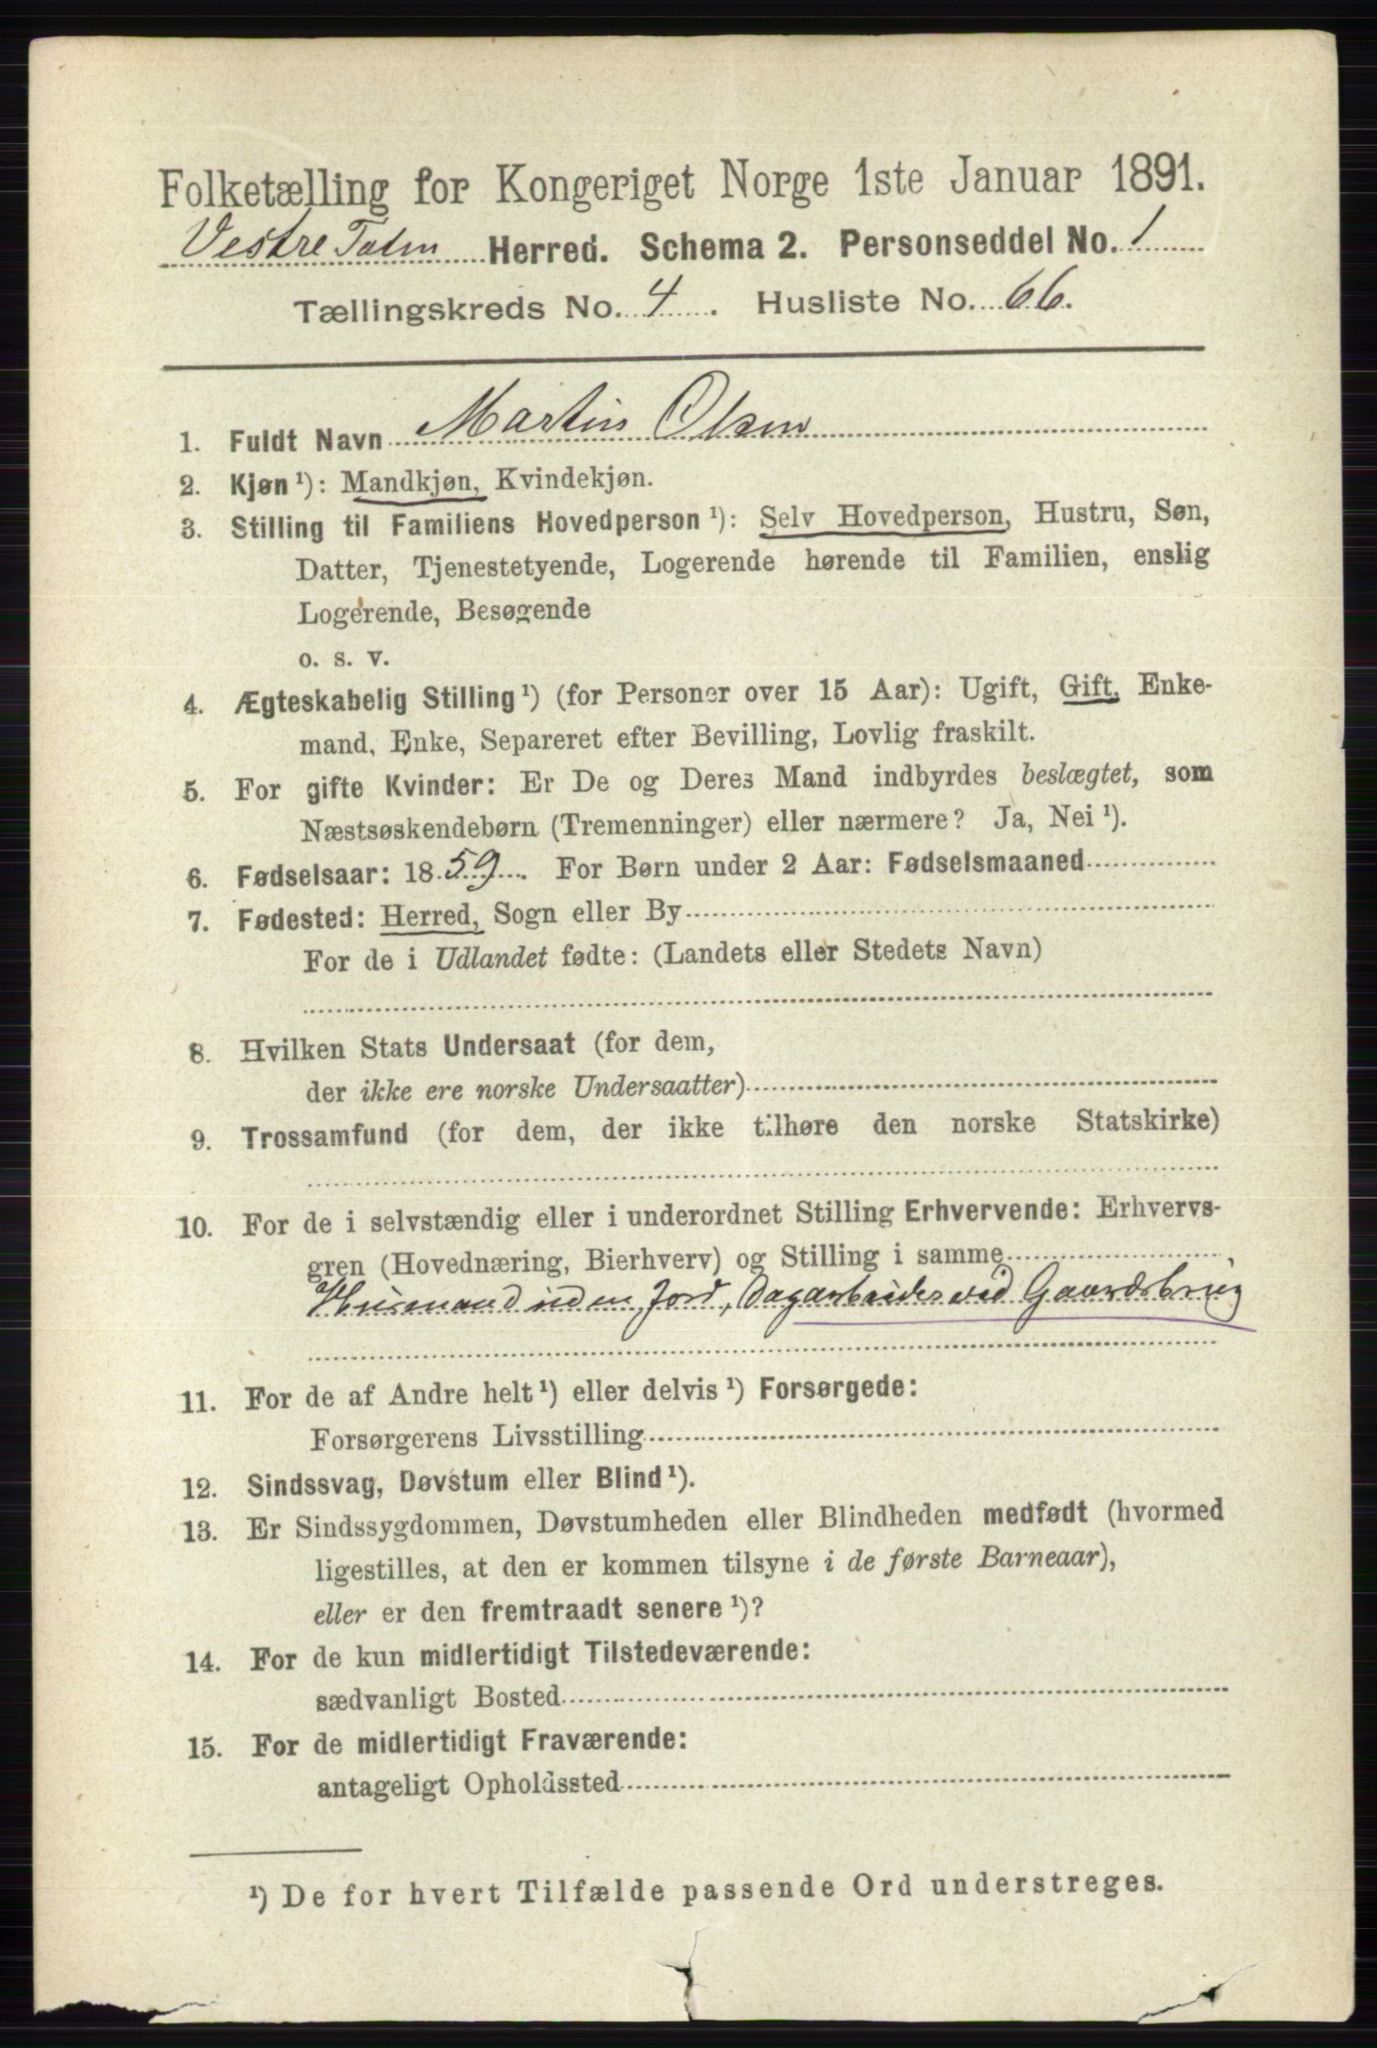 Folketælling for Kongeriget Norge 1ste Januar 1891.
Vestre Toten Herred. Schema 2. Personseddel No. 1
Tællingskreds No. 4. Husliste No. 66.
1. Fuldt Navn Martin Olsen
2. Kjøn ¹): Mandkjøn, Kvindekjøn.
3. Stilling til Familiens Hovedperson ¹): Selv Hovedperson, Hustru, Søn,
Datter, Tjenestetyende, Logerende hørende til Familien, enslig
Logerende, Besøgende
o. s. v.
4. Ægteskabelig Stilling ¹) (for Personer over 15 Aar): Ugift, Gift, Enke-
mand, Enke, Separeret efter Bevilling, Lovlig fraskilt.
5. For gifte Kvinder: Er De og Deres Mand indbyrdes beslægtet, som
Næstsøskendebørn (Tremenninger) eller nærmere? Ja, Nei ¹).
6. Fødselsaar: 1859. For Børn under 2 Aar: Fødselsmaaned
7. Fødested: Herred, Sogn eller By
For de i Udlandet fødte: (Landets eller Stedets Navn)
8. Hvilken Stats Undersaat (for dem,
der ikke ere norske Undersaatter)
9. Trossamfund (for dem, der ikke tilhøre den norske Statskirke)
10. For de i selvstændig eller i underordnet Stilling Erhvervende: Erhvervs-
gren (Hovednæring, Bierhverv) og Stilling i samme
Husmand uden Jord, Dagarbeider ved Gaardsbrug
11. For de af Andre helt ¹) eller delvis ¹) Forsørgede:
Forsørgerens Livsstilling
12. Sindssvag, Døvstum eller Blind ¹).
13. Er Sindssygdommen, Døvstumheden eller Blindheden medfødt (hvormed
ligestilles, at den er kommen tilsyne i de første Barneaar),
eller er den fremtraadt senere ¹)?
14. For de kun midlertidigt Tilstedeværende:
sædvanligt Bosted
15. For de midlertidigt Fraværende:
antageligt Opholdssted
¹) De for hvert Tilfælde passende Ord understreges.